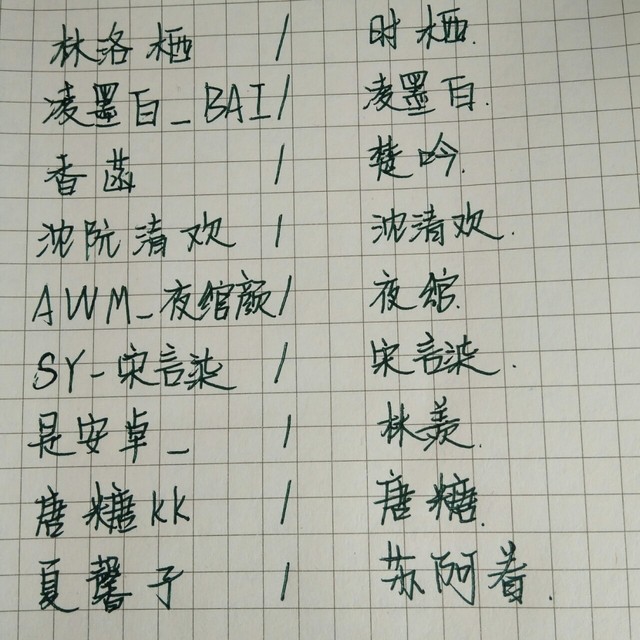 林洛栖 / 时栖.
凌墨白_BAI/ 凌墨白.
香菡 / 楚吟.
沈阮清欢 / 沈清欢.
AWM_夜绾颜/ 夜绾.
SY-宋言染 / 宋言染.
是安卓_ / 林羡.
唐糖kk / 唐糖.
夏馨予 / 苏阿眷.